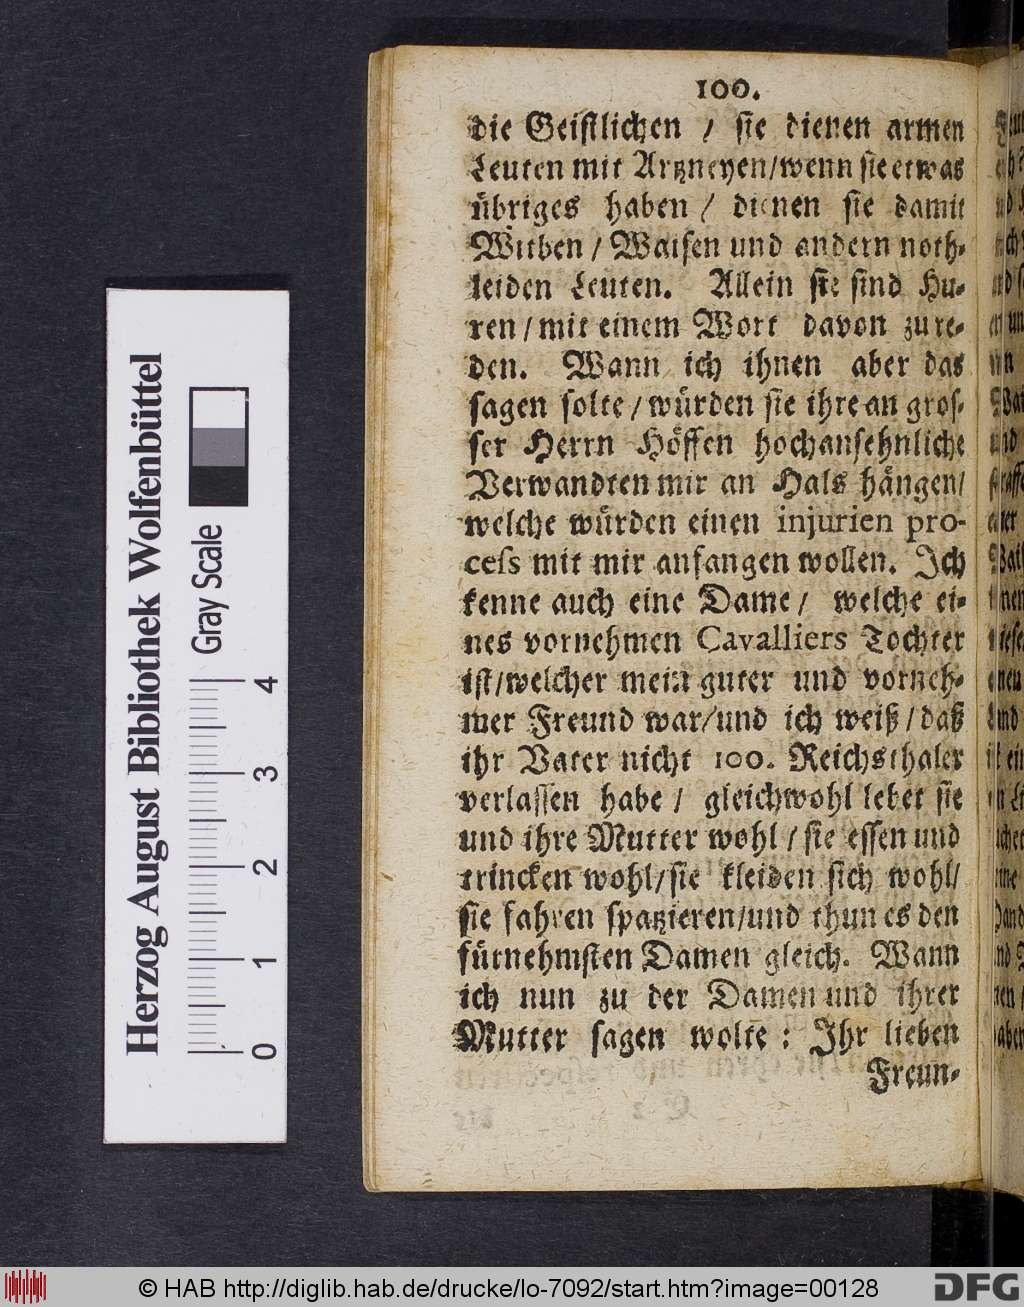 100.
die Geistlichen / sie dienen armen
Leuten mit Artzneyen/wenn sie etwas
übriges haben / dienen sie damit
Witben / Waisen und andern noth-
leiden Leuten. Allein sie sind Hu-
ren / mit einem Wort davon zu re-
den. Wann ich ihnen aber das
sagen solte / würden sie ihre an gros-
ser Herrn Höffen hochansehnliche
Verwandten mir an Hals hängen/
welche würden einen injurien pro-
cess mit mir anfangen wollen. Ich
kenne auch eine Dame / welche ei-
nes vornehmen Cavalliers Tochter
ist/welcher mein guter und vorneh-
mer Freund war/und ich weiß / daß
ihr Vater nicht 100. Reichsthaler
verlassen habe / gleichwohl lebet sie
und ihre Mutter wohl / sie essen und
trincken wohl/sie kleiden sich wohl/
sie fahren spatzieren/und thun es den
fürnehmsten Damen gleich. Wann
ich nun zu der Damen und ihrer
Mutter sagen wolte : Ihr lieben
Freun-
Herzog August Bibliothek Wolfenbüttel
Gray Scale
0 1 2 3 4
© HAB http://diglib.hab.de/drucke/lo-7092/start.htm?image=00128
DFG